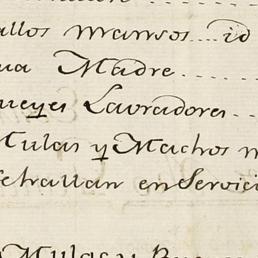 allos mansos....id
ua Madre......
ueyes Lavradores...
Mulas y Machos m
etrallan en Servici
Mulas y Bue